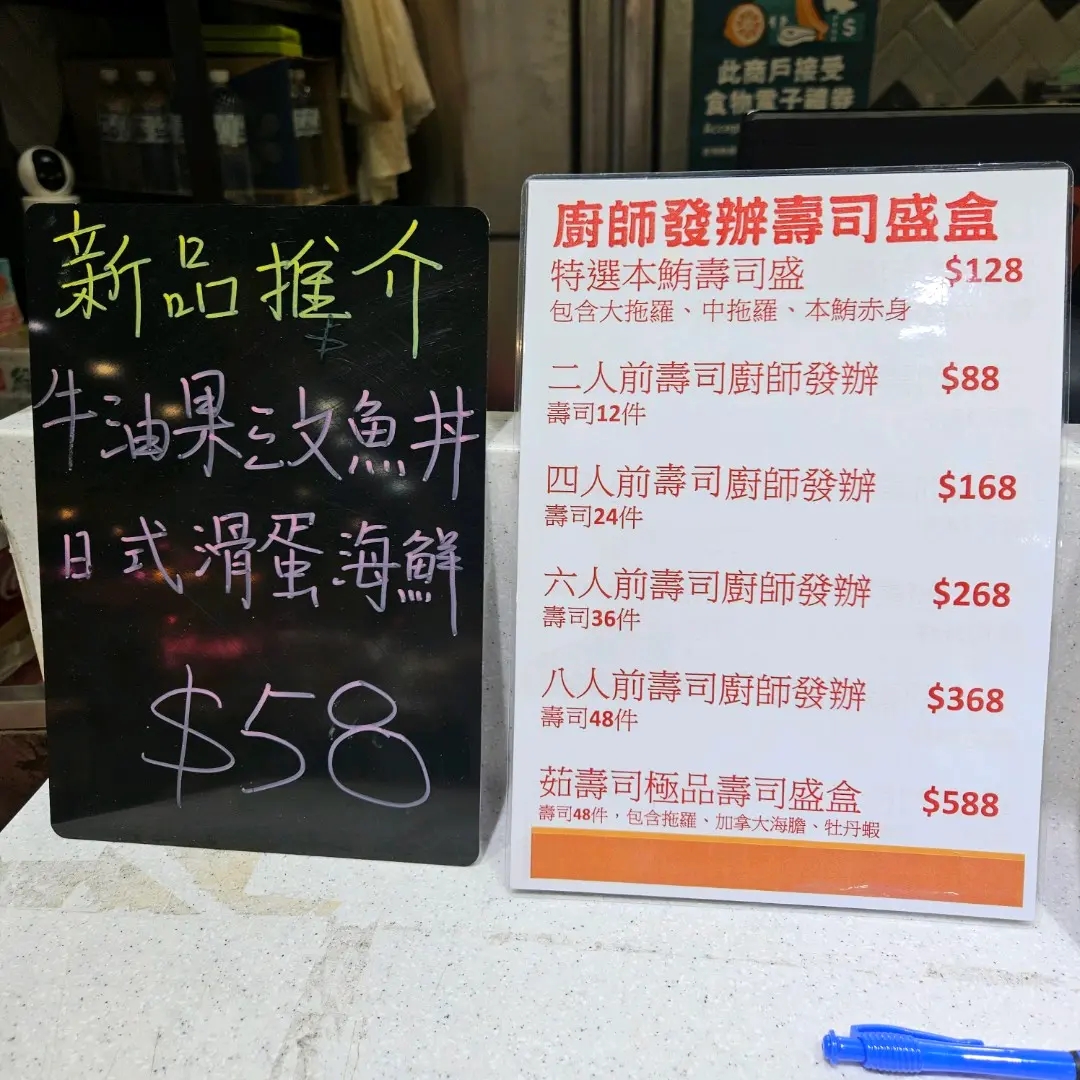 新品推介
$
牛油果三文魚丼
日式滑蛋海鮮
$58
此商戶接受
食物電子禮券
廚師發辦壽司盛盒
特選本鮪壽司盛 $128
包含大拖羅、中拖羅、本鮪赤身
二人前壽司廚師發辦 $88
壽司12件
四人前壽司廚師發辦 $168
壽司24件
六人前壽司廚師發辦 $268
壽司36件
八人前壽司廚師發辦 $368
壽司48件
茹壽司極品壽司盛盒 $588
壽司48件，包含拖羅、加拿大海膽、牡丹蝦